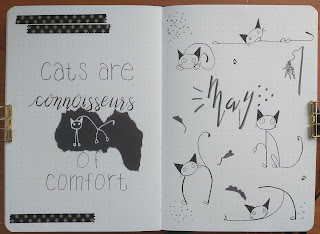 cats are
connoisseurs
of
comfort
May